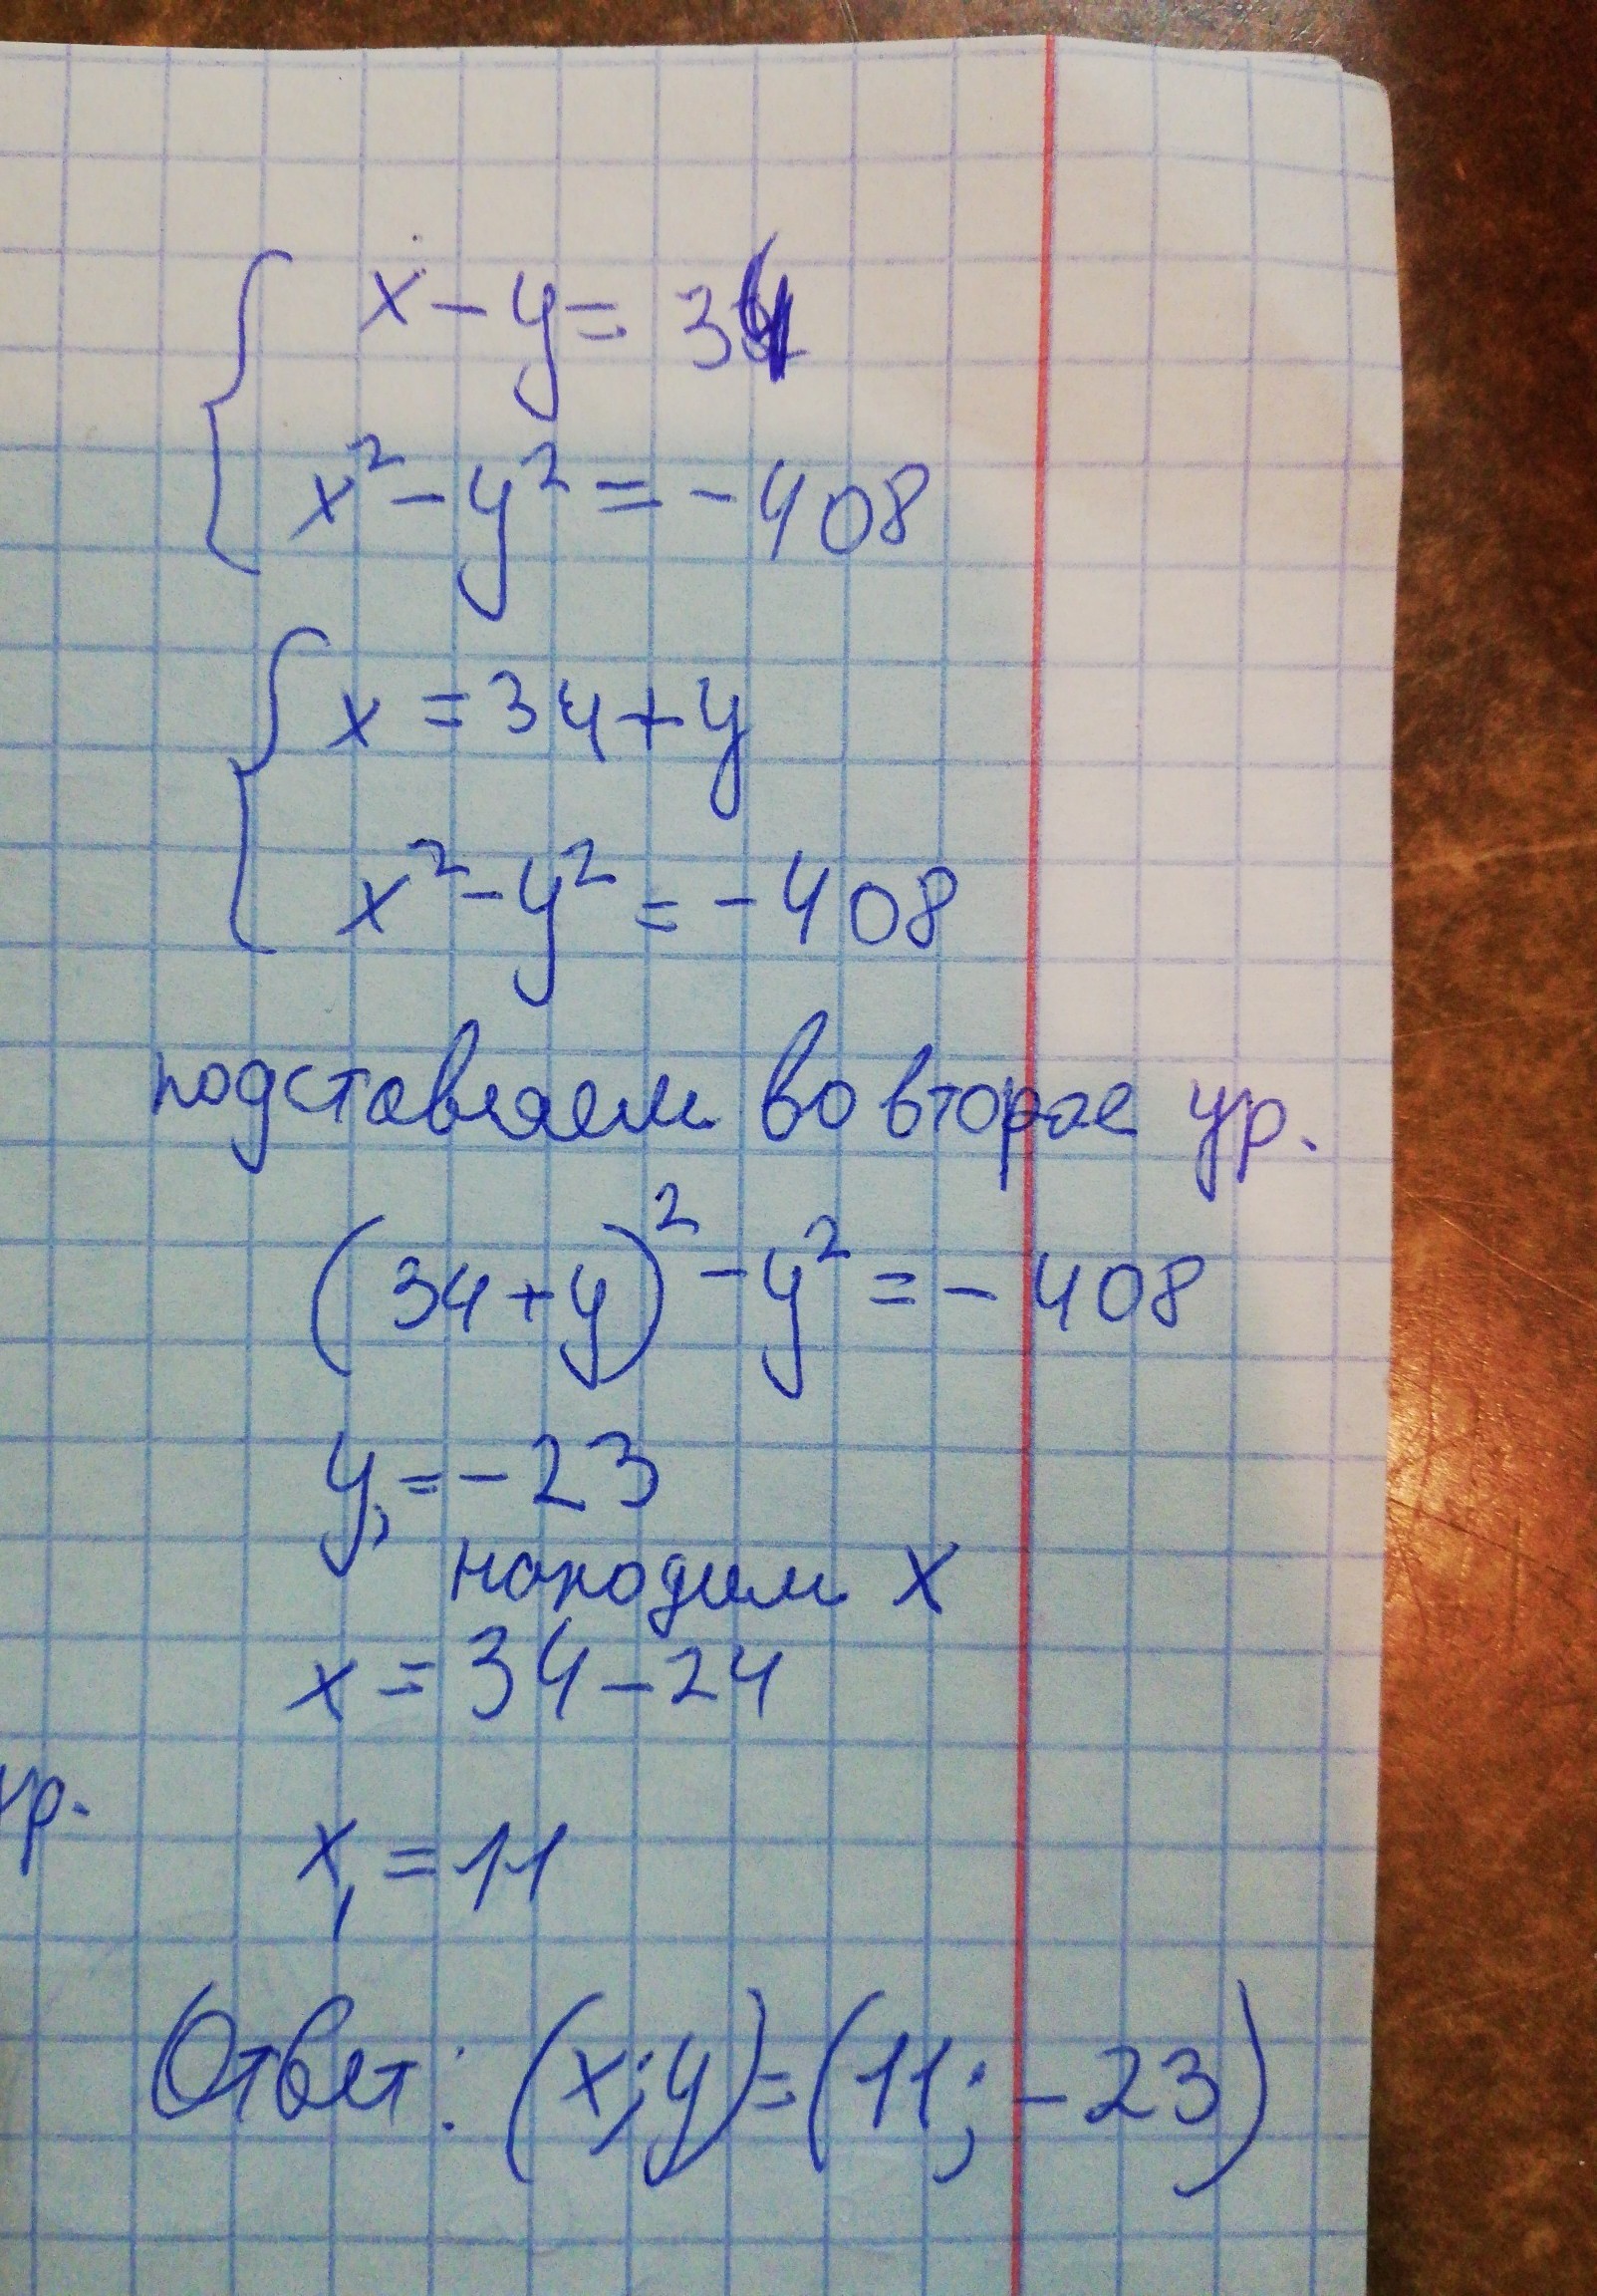 x - y = 34
x² - y² = -408
x = 34 + y
x² - y² = -408
подставляем во второе ур.
(34 + y)² - y² = -408
y₁ = -23
находим x
x = 34 - 24
ур.
x₁ = 11
Ответ: (x; y) = (11; -23)